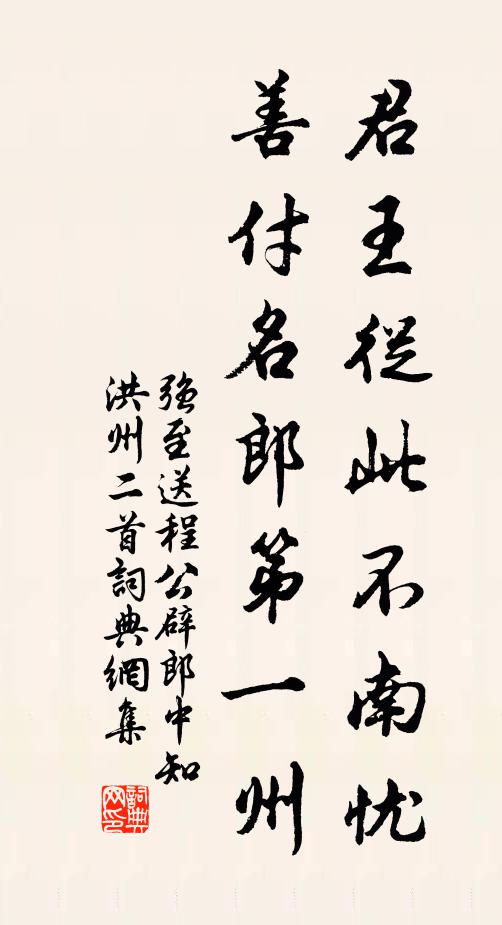 君王從此不南忧
善付名郎第一州
强至送程公辟郎中知
洪州二首詞典網集
詞典网印